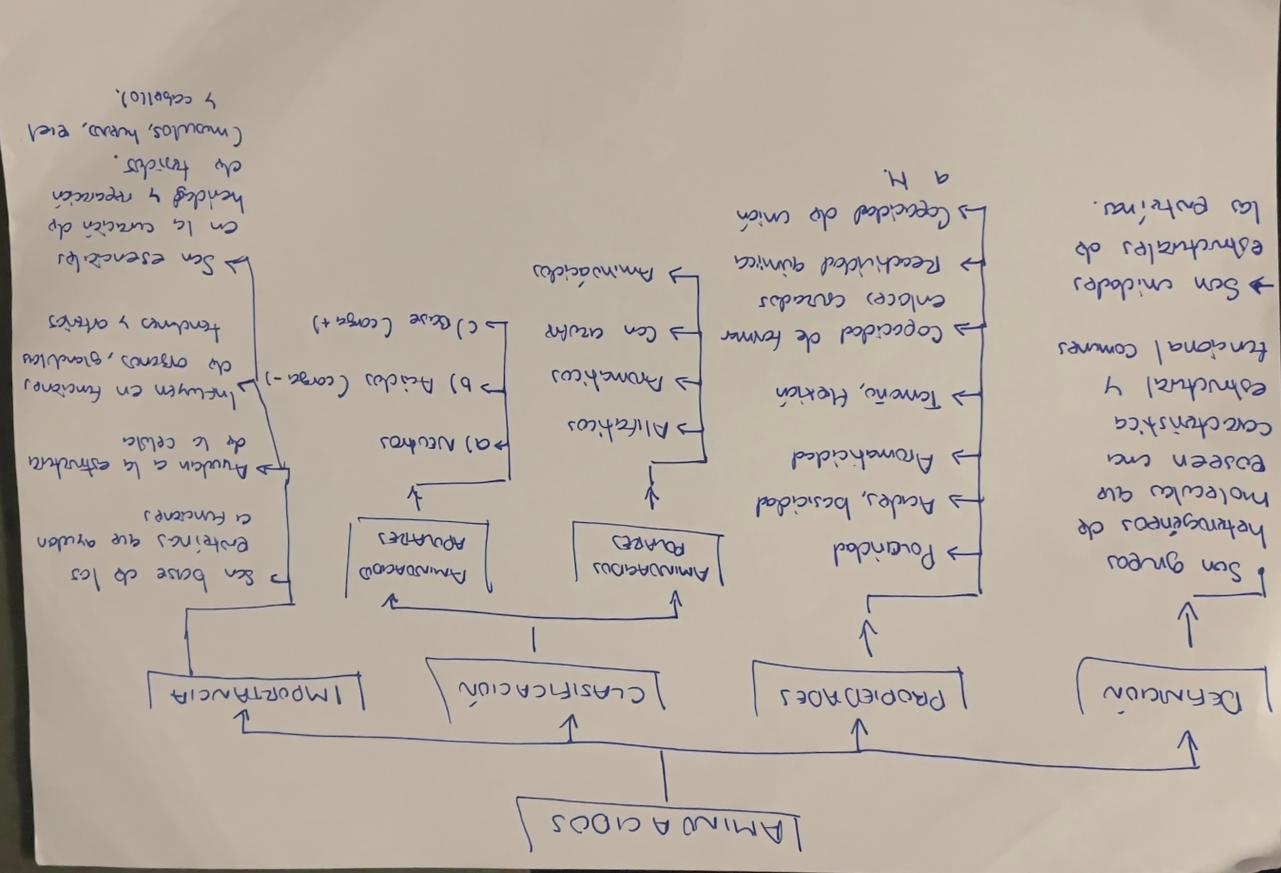 AMINO ACIDOS
DEFINICIÓN
• Son grupos
heterogéneos de
moleculas que
poseen una
caracteristica
estructural y
funcional comunes
→ Son unidades
estructurales de
las proteínas.
PROPIEDADES
→ Polaridad
→ Acides, bascidad
→ Aromaticidad
→ Tamaño, flexión
→ Capacidad de formar
enlaces cruzados
→ Reactividad química
→ Capacidad de unión
a M.
CLASIFICACIÓN
AMINOACIDOS
POLARES
→ Alifáticos
→ Aromaticos
→ Con azufre
→ Aminoácidos
AMINOACIDOS
APOLARES
→ a) Neutros
→ b) Acidos (carga -)
→ c) Base (carga +)
IMPORTANCIA
→ Son base de las
proteínas que ayudan
a funciones
→ Ayudan a la estructura
de la celula
→ Influyen en funciones
de organos, glandulas
tendones y arterias
→ Son esenciales
en la curación de
heridas y reparación
de tejidos.
(musculos, hueso, piel
y cabello).